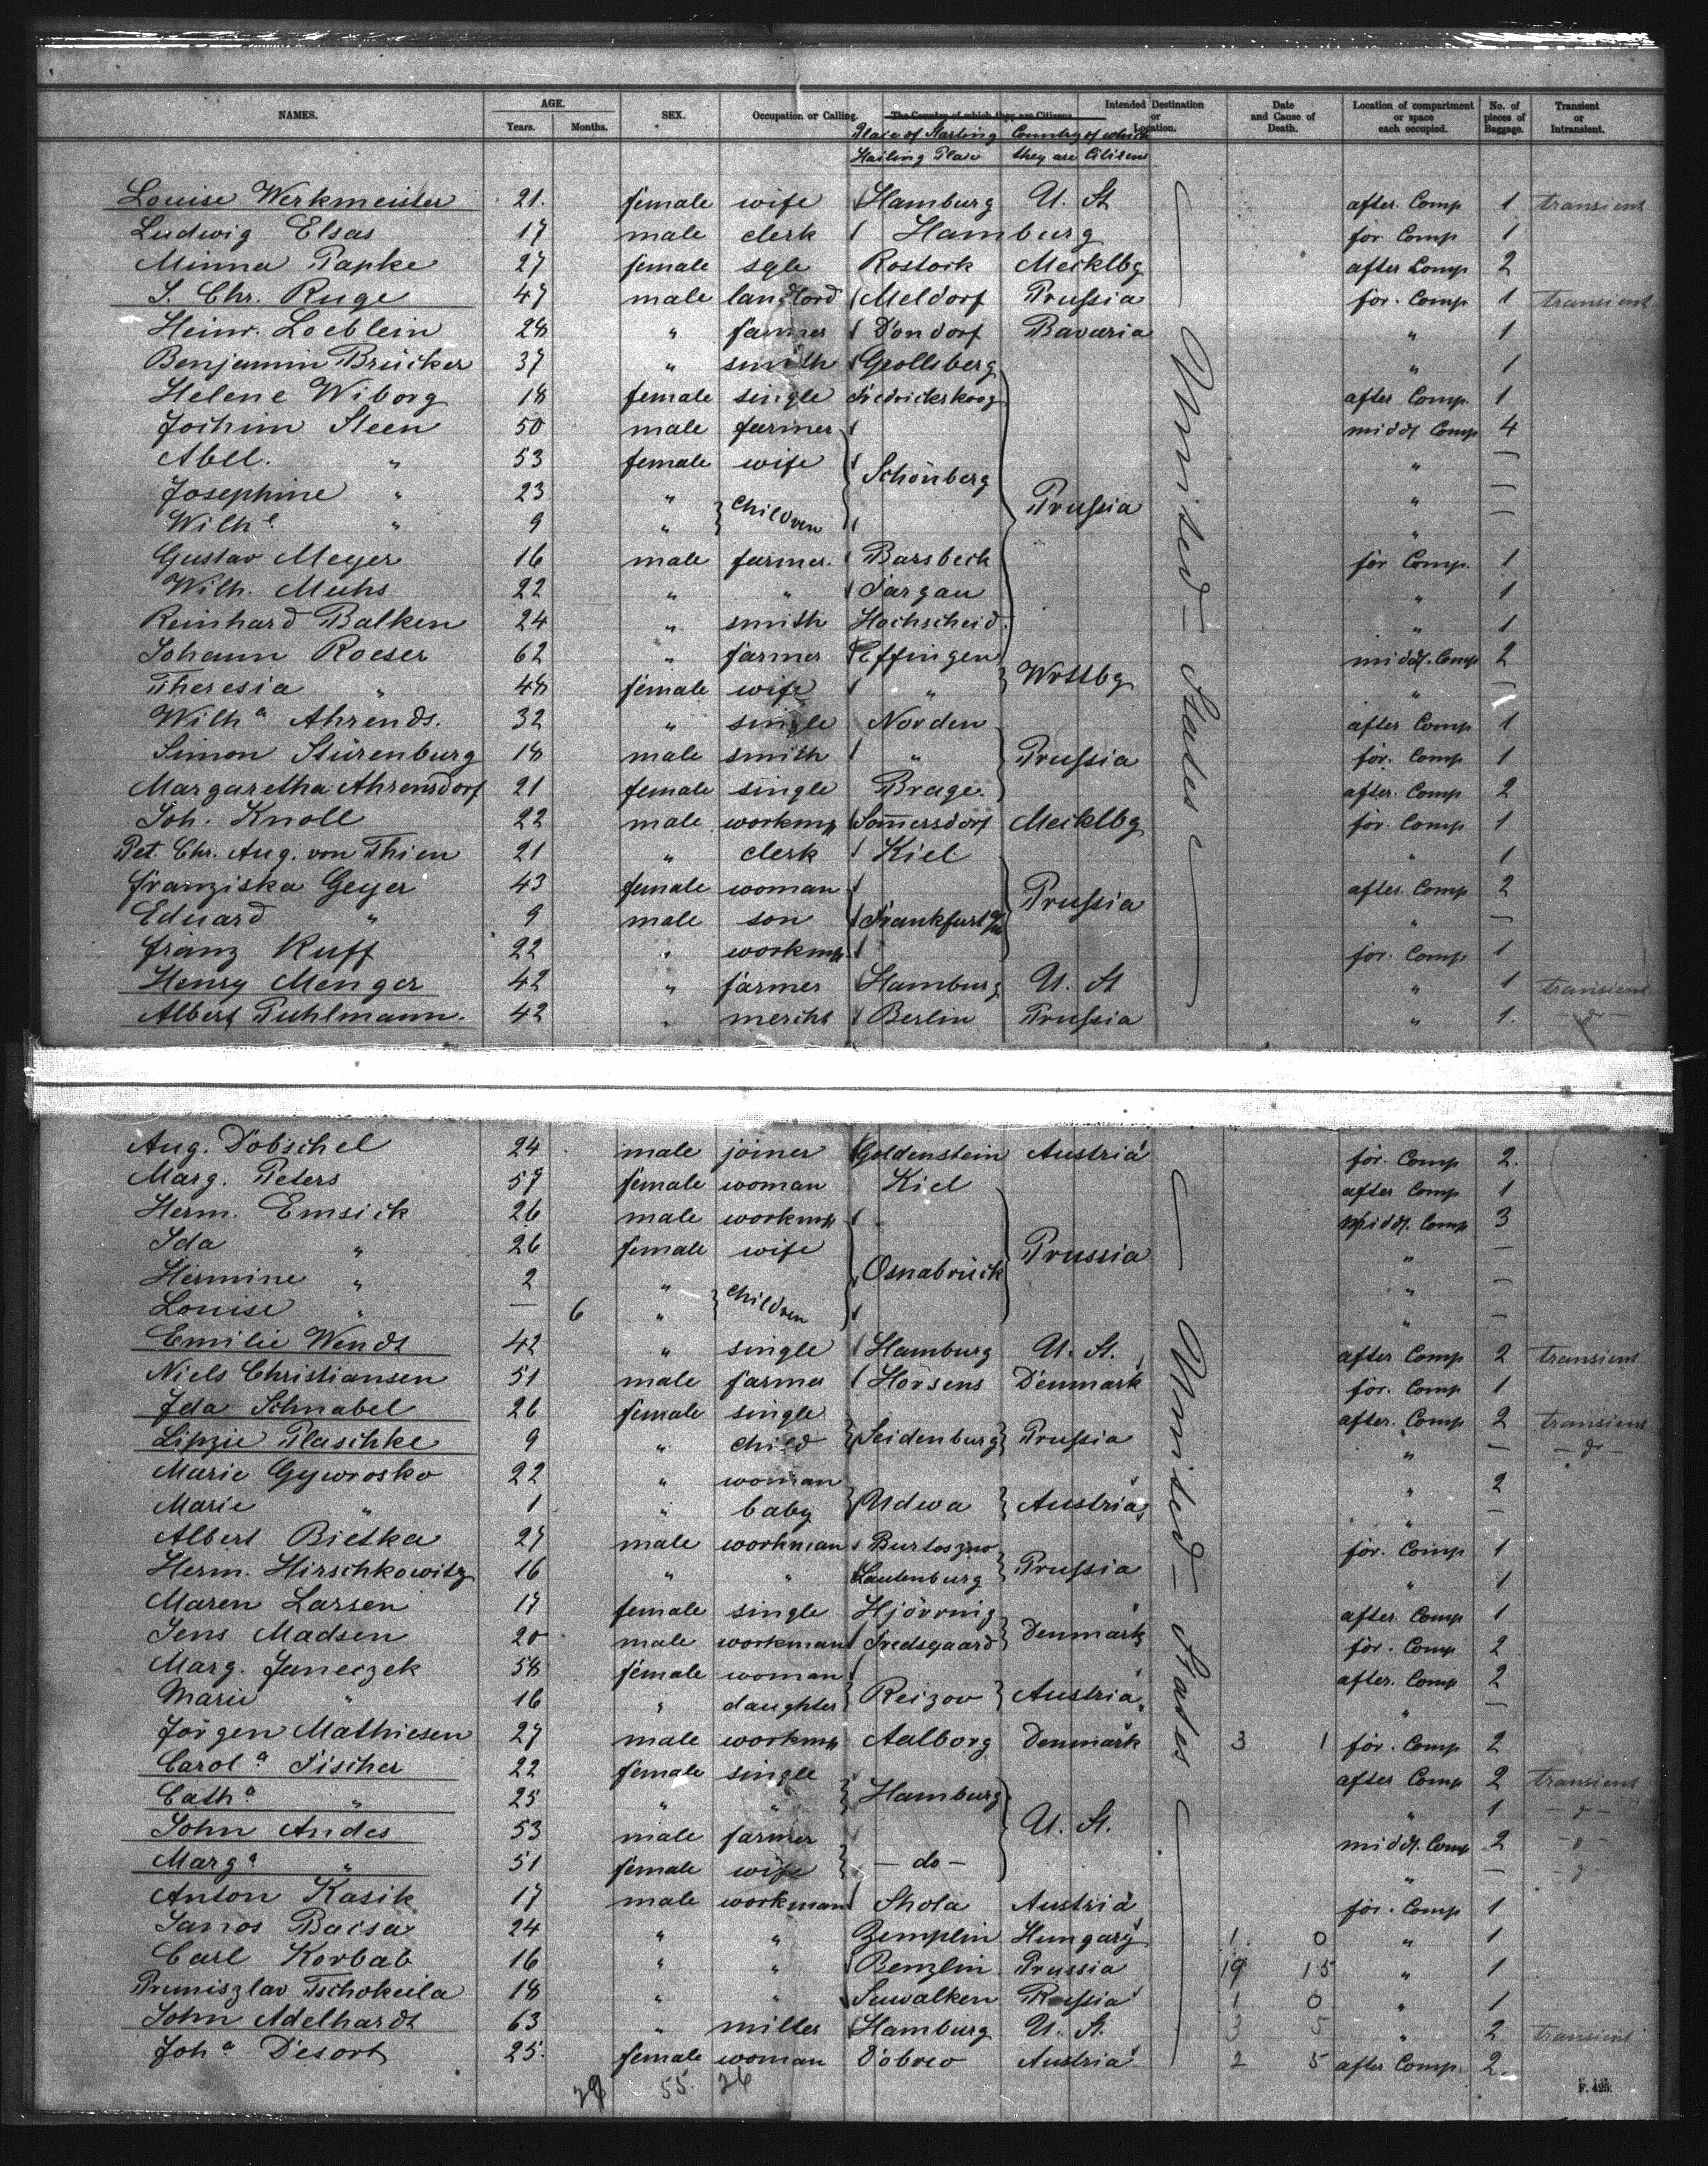 NAMES. AGE. Years. Months. SEX. Occupation or Calling. The Country of which they are Citizens. Intended Destination or Location. Date and Cause of Death. Location of compartment or space each occupied. No. of pieces of Baggage. Transient or Intransient.
Place of Starting Country of which
Hailing Place they are Citizens
Louise Werkmeister 21. female wife Hamburg U. St after. Comp 1 transient
Ludwig Elsas 17 male clerk Hamburg for Comp 1
Minna Papke 27 female sgle Rostock Mecklbg after Comp 2
J. Chr. Ruge 47 male landlord Meldorf Prussia for. Comp 1 transient
Heinr. Loeblein 28 " farmer Dondorf Bavaria " 1
Benjamin Brücker 37 " smith Grollsberg " 1
Helene Wiborg 18 female single Fredrickskoog after Comp. 1
Jochim Steen 50 male farmer middl Comp 4
Abel. " 53 female wife Schönberg " —
Josephine " 23 " Children Prussia " —
Wilhe " 9 " " —
Gustav Meyer 16 male farmer. Barsbeck for Comp. 1
Wilh. Muhs 22 " " Fargau " 1
Reinhard Balken 24 " smith Hochscheid " 1
Johann Roeser 62 " farmer Effingen middl. Comp 2
Theresia " 48 female wife " Wrttbg " —
Wilha Ahrends. 32 " single Norden after Comp 1
Simon Stürenburg 18 male smith " Prussia for. Comp 1
Margaretha Ahrensdorf 21 female single Brage. after. Comp 2
Joh. Knoll 22 male workmn Somersdorf Mecklbg for. Comp 1
Pet. Chr. Aug. von Thien 21 " clerk Kiel " 1
Franziska Geyer 43 female woman Prussia after. Comp 2
Eduard " 9 male son Frankfurt a/m " —
Franz Ruff 22 " workmn for. Comp 1
Henry Menger 42 " farmer Hamburg U. St " 1 transient
Albert Puhlmann. 42 " mercht Berlin Prussia " 1. — do —
United States
Aug. Dobschel 24 male joiner Goldenstein Austria for. Comp 2.
Marg. Peters 57 female woman Kiel after Comp 1
Herm. Emsick 26 male workmn middl. Comp 3
Ida " 26 female wife Osnabrück Prussia " —
Hermine " 2 " Children " —
Louise " — 6 " " —
Emilie Wendt 42 " single Hamburg U. St. after Comp 2 transient
Niels Christiansen 51 male farmer Horsens Denmark for. Comp 1
Ida Schnabel 26 female single after. Comp 2 transient
Lipzie Plaschke 9 " child Seidenburg Prussia " — — do —
Marie Gywrosko 22 " woman " 2
Marie " 1 " baby Udwa Austria " —
Albert Bietka 27 male workman for. Comp 1
Herm. Hirschkowitz 16 " " Lautenburg Prussia " 1
Maren Larsen 17 female single Hjörring after. Comp 1
Jens Madsen 20 male workman Fredsgaard Denmark for. Comp 2
Marg. Janeczek 58 female woman after. Comp 2
Marie " 16 " daughter Reizov Austria " —
Jörgen Mathiesen 27 male workmn Aalborg Denmark 3 1 for. Comp 2
Carola Fischer 22 female single Hamburg after Comp 2 transient
Catha " 25 " " " 1 — do —
John Andes 53 male farmer U. St. middl. Comp 2 — do —
Marga " 51 female wife — do — " — — do —
Anton Kasik 17 male workman Skola Austria for. Comp 1
Janos Bacsa 24 " " Zemplin Hungary 1. 0 " 1
Carl Korbab 16 " " Benzlin Prussia 19 15 " 1
Pruniszlav Tschokeila 18 " " Suwalken Russia 1 0 " 1
John Adelhardt 63 " miller Hamburg U. St. 3 5 " 2 transient
Joha Desort 25. female woman Dobrev Austria 2 5 after Comp. 2.
United States
29 55. 26
F. 425.